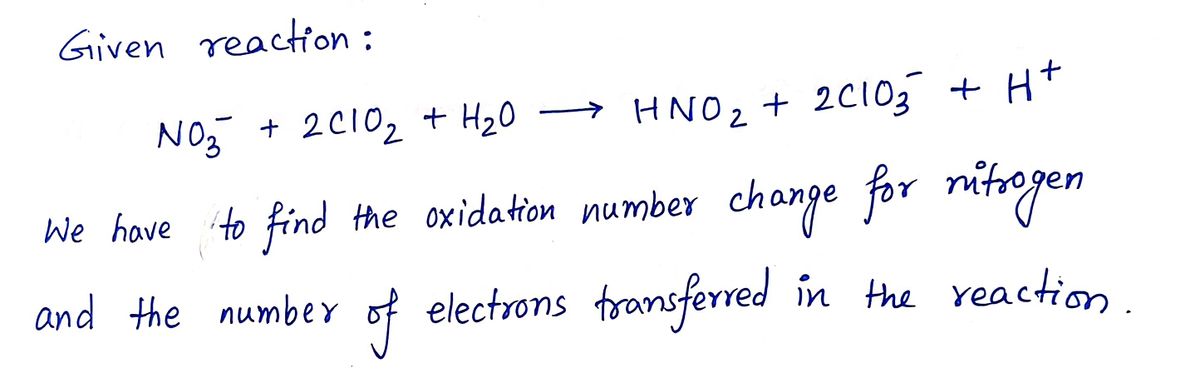 Given reaction :
NO₃⁻ + 2ClO₂ + H₂O ⟶ HNO₂ + 2ClO₃⁻ + H⁺
We have to find the oxidation number change for nitrogen
and the number of electrons transferred in the reaction.